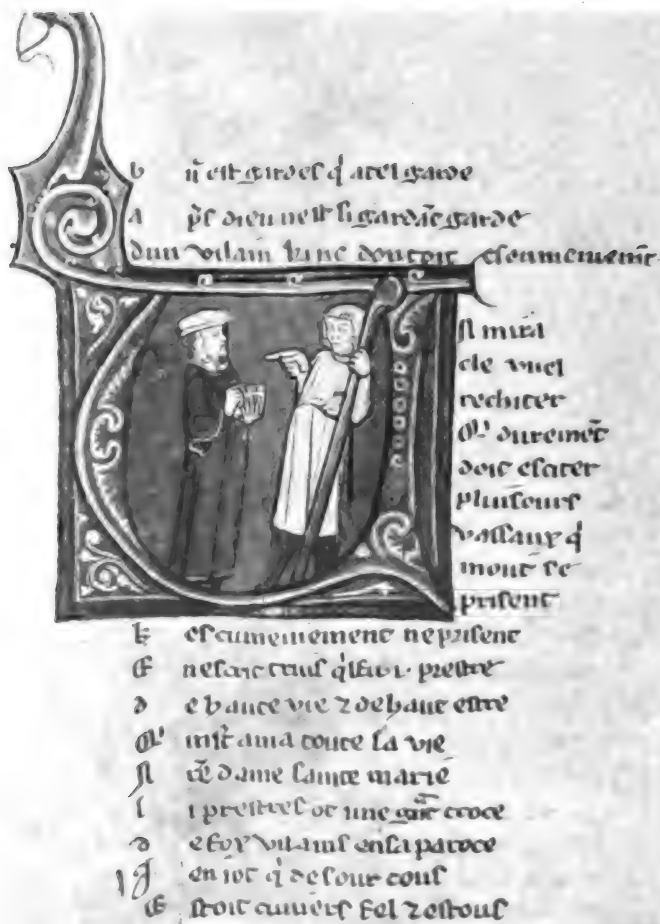 b n̄ est gardes q̇ a tel garde
a p̄s dieu nest si gardās garde
dun vilain ki ne doutoit escumeniem̄t
N mira
cle vuel
rechiter
Ml' duremēt
doit esciter
pluisours
vassaux q̇
mout se
prisent
k escumeniement ne prisent
E prestre
d e haute vie ⁊ de haut estre
M' ama toute sa vie
N r̄e dame sainte marie
l i prestres ot une gnt croce
d e fox vilains en sa paroce
J en i ot q̇ desour tous
E stoit cuivers fel ⁊ estous